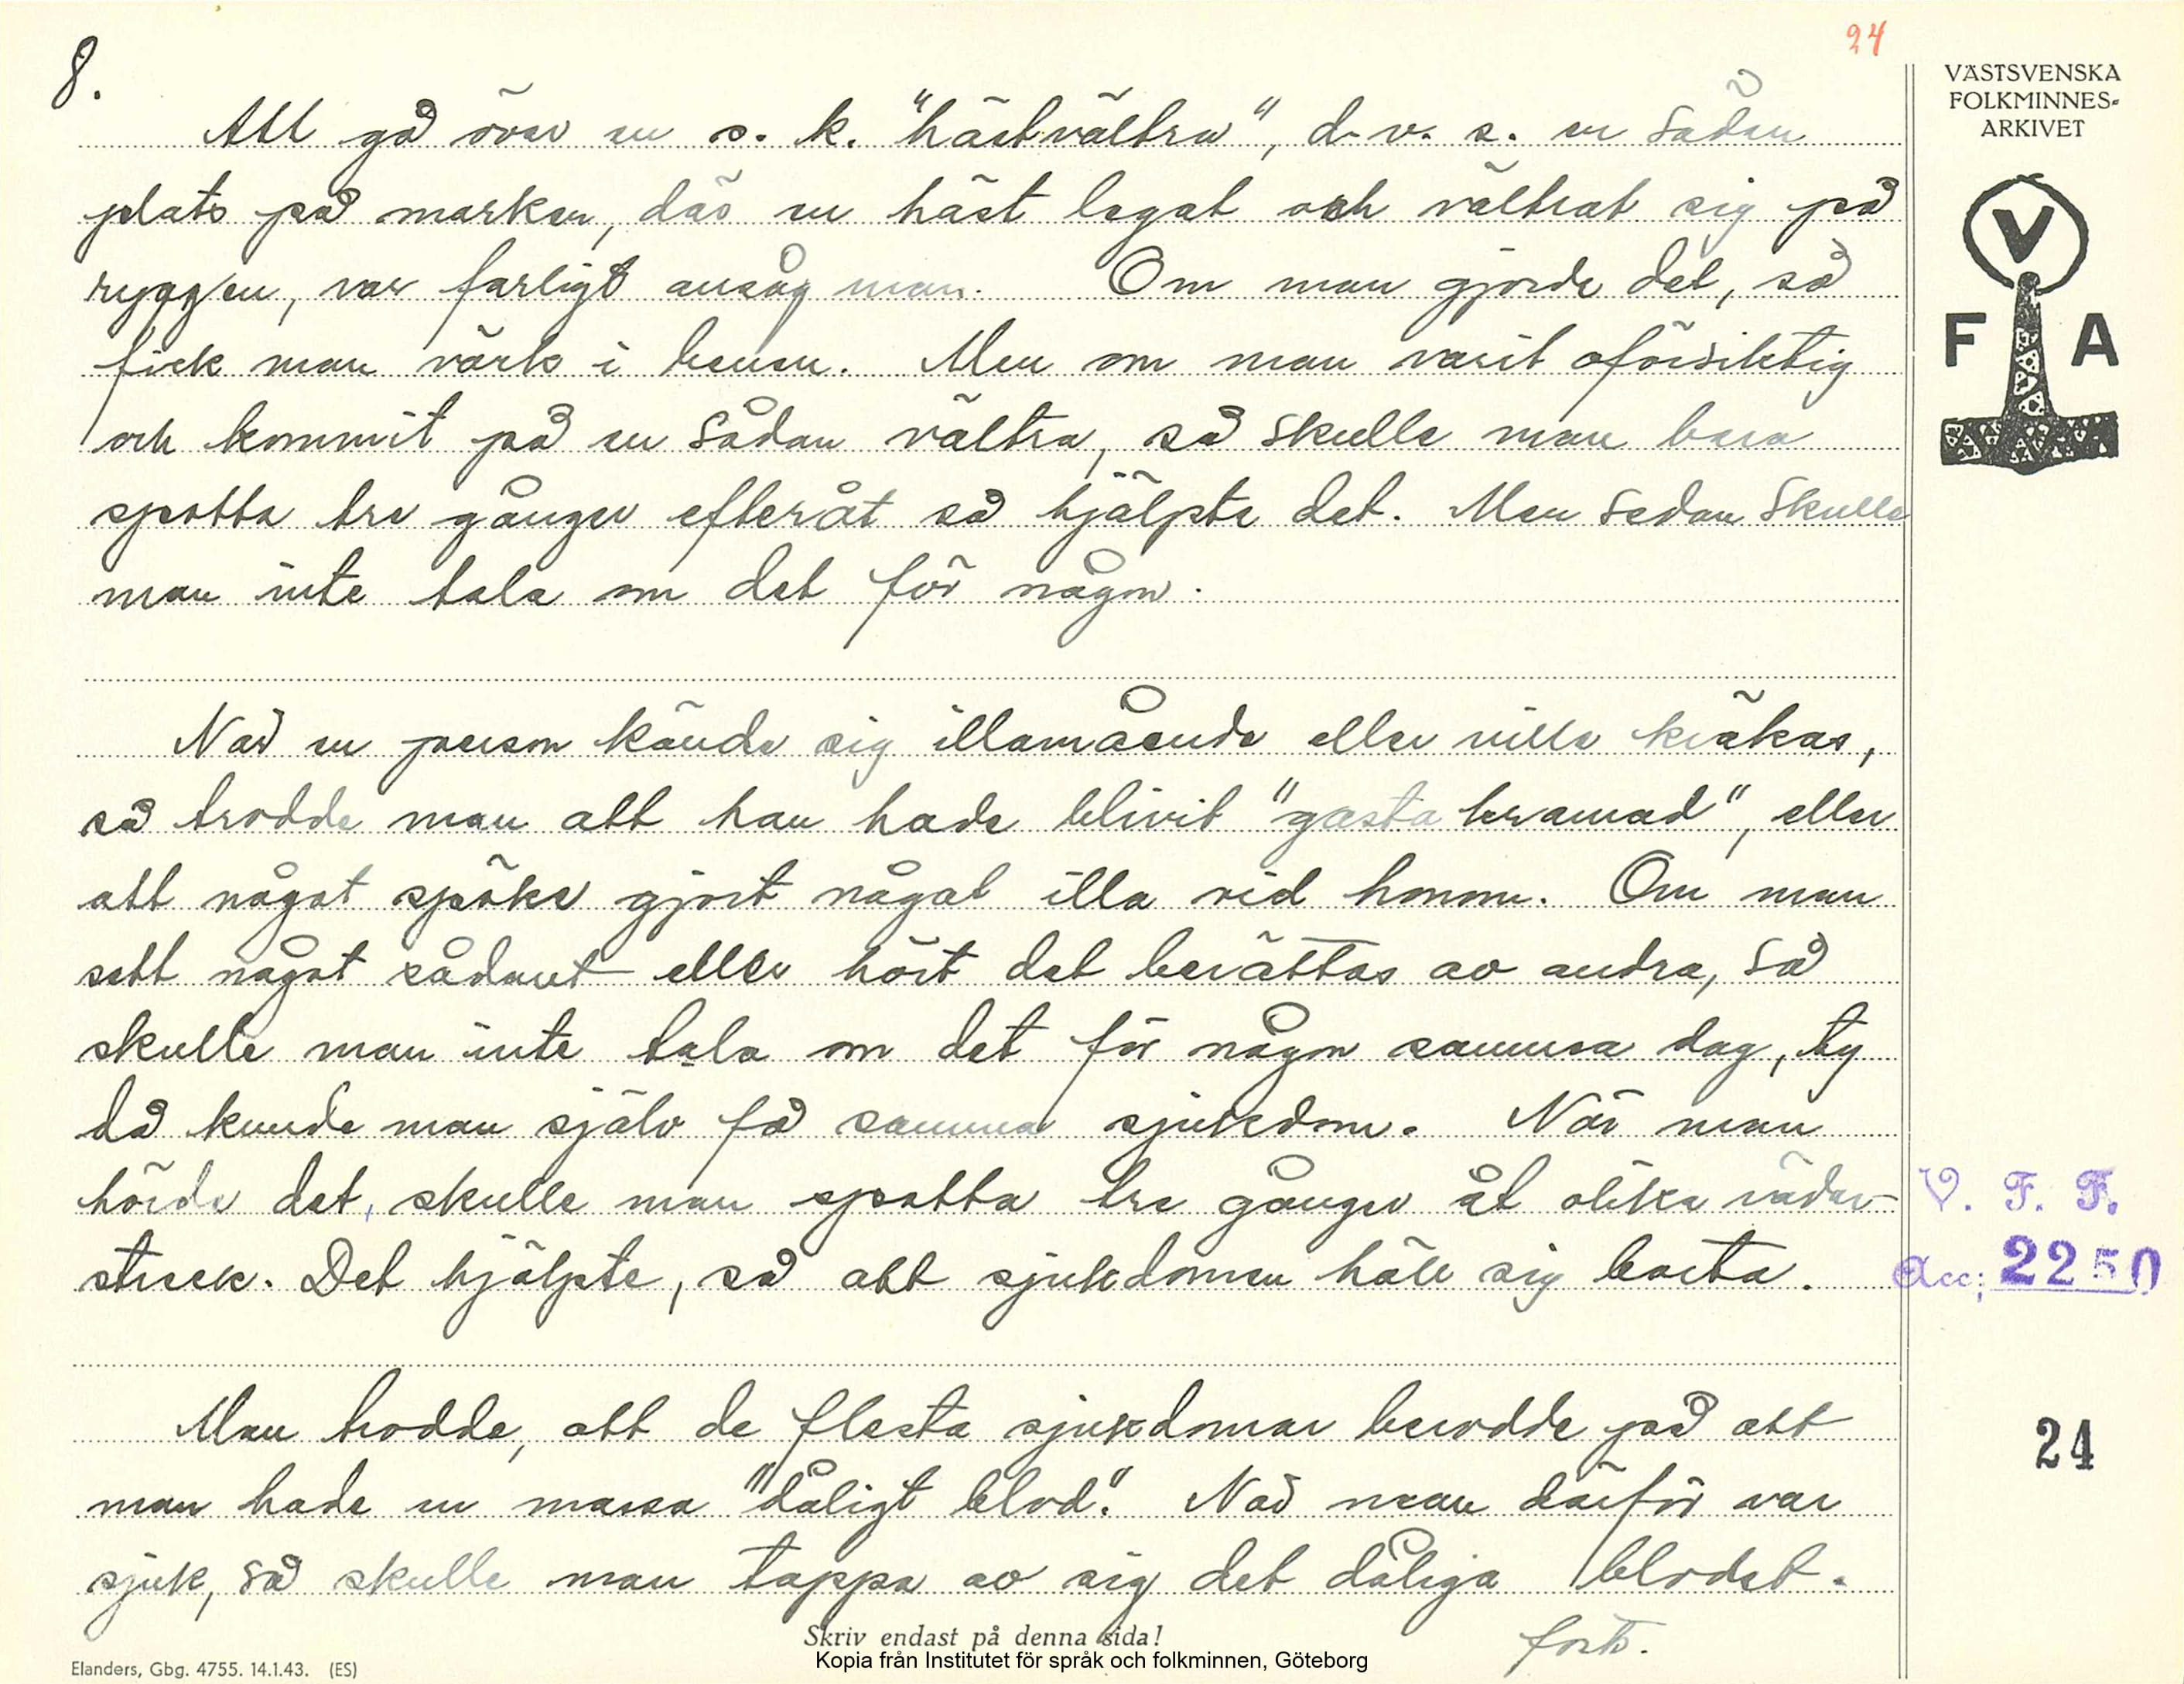 8.
24
Att gå över en s. k. "hästvältra", d. v. s. en sådan
plats på marken, där en häst legat och vältrat sig på
ryggen, var farligt ansåg man. Om man gjorde det, så
fick man värk i benen. Men om man varit oförsiktig
och kommit på en sådan vältra, så skulle man bara
spotta tre gånger efteråt så hjälpte det. Men sedan skulle
man inte tala om det för någon.
När en person kände sig illamående eller ville kräkas,
så trodde man att han hade blivit "gastakramad", eller
att något spöke gjort något illa vid honom. Om man
sett något sådant eller hört det berättas av andra, så
skulle man inte tala om det för någon samma dag, ty
då kunde man själv få samma sjukdom. När man
hörde det, skulle man spotta tre gånger åt olika väder-
streck. Det hjälpte, så att sjukdomen höll sig borta.
Man trodde, att de flesta sjukdomar berodde på att
man hade en massa "dåligt blod". När man därför var
sjuk, så skulle man tappa av sig det dåliga blodet.
forts.
Skriv endast på denna sida!
Kopia från Institutet för språk och folkminnen, Göteborg
Elanders, Gbg. 4755. 14.1.43. (ES)
VÄSTSVENSKA
FOLKMINNES-
ARKIVET
V
F A
V. F. F.
Acc: 2250
24